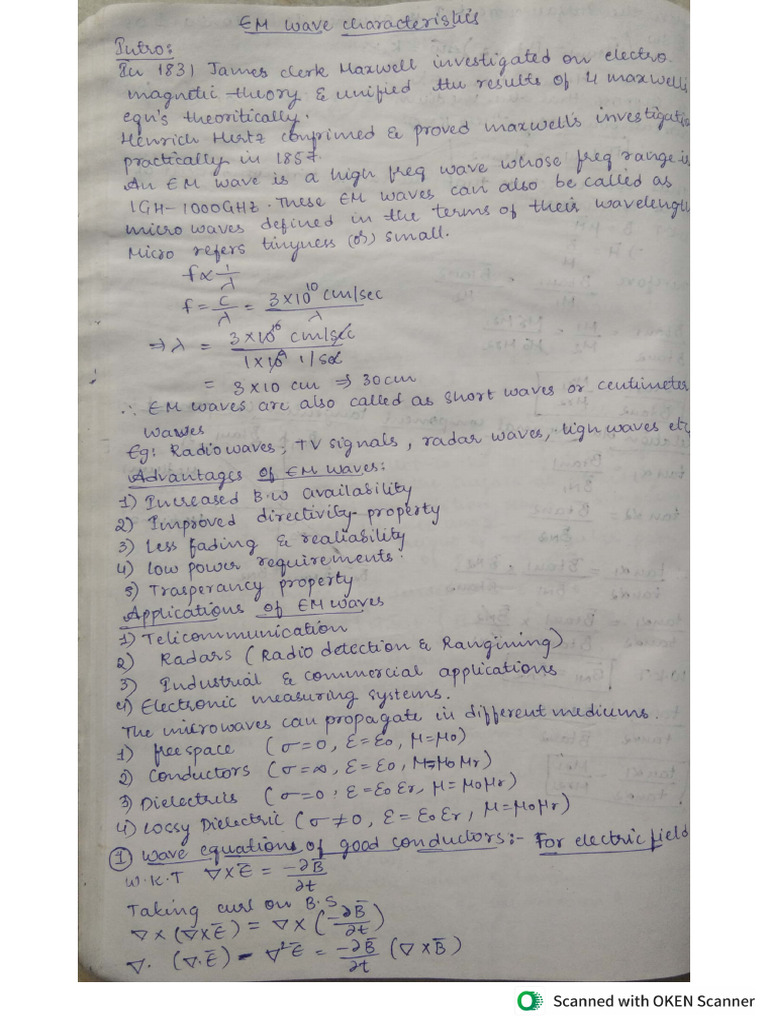 EM wave characteristis
Intro:
In 1831 James clerk Maxwell investigated on electro
magnetic theory & unified the results of 4 maxwell's
eqn's theoritically.
Henrich Hertz conprimed & proved maxwell's investigation
practically in 1857.
An EM wave is a high freq wave whose freq range is
1GH-1000GHz. These EM waves can also be called as
micro waves defined in the terms of their wavelength
Micro refers tinyness (or) small.
f∝1/λ
f = C/λ = 3×10¹⁰ cm/sec / λ
⇒ λ = 3×10¹⁰ cm/sec / 1×10⁹ 1/sec
= 3×10 cm ⇒ 30cm
∴ EM waves are also called as short waves or centimeter
waves
Eg: Radio waves, TV signals, radar waves, ligh waves etc
Advantages of EM waves:
1) Increased B.W availability
2) Improved directivity property
3) Less fading & realiability
4) low power requirements.
5) Trasperancy property
Applications of EM waves
1) Telicommunication
2) Radars (Radio detection & Rangining)
3) Industrial & commercial applications
4) Electronic measuring systems.
The microwaves can propagate in different mediums.
1) free space (σ=0, ε=ε₀, μ=μ₀)
2) Conductors (σ=∞, ε=ε₀, μ=μ₀μr)
3) Dielectrics (σ=0, ε=ε₀εr, μ=μ₀μr)
4) Lossy Dielectric (σ≠0, ε=ε₀εr, μ=μ₀μr)
① Wave equations of good conductors:- For electric field
W.K.T ∇×Ē = -∂B̄/∂t
Taking curl on B.S
∇×(∇×Ē) = ∇×(-∂B̄/∂t)
∇.(∇.Ē) - ∇²Ē = -∂B̄/∂t (∇×B̄)
Scanned with OKEN Scanner